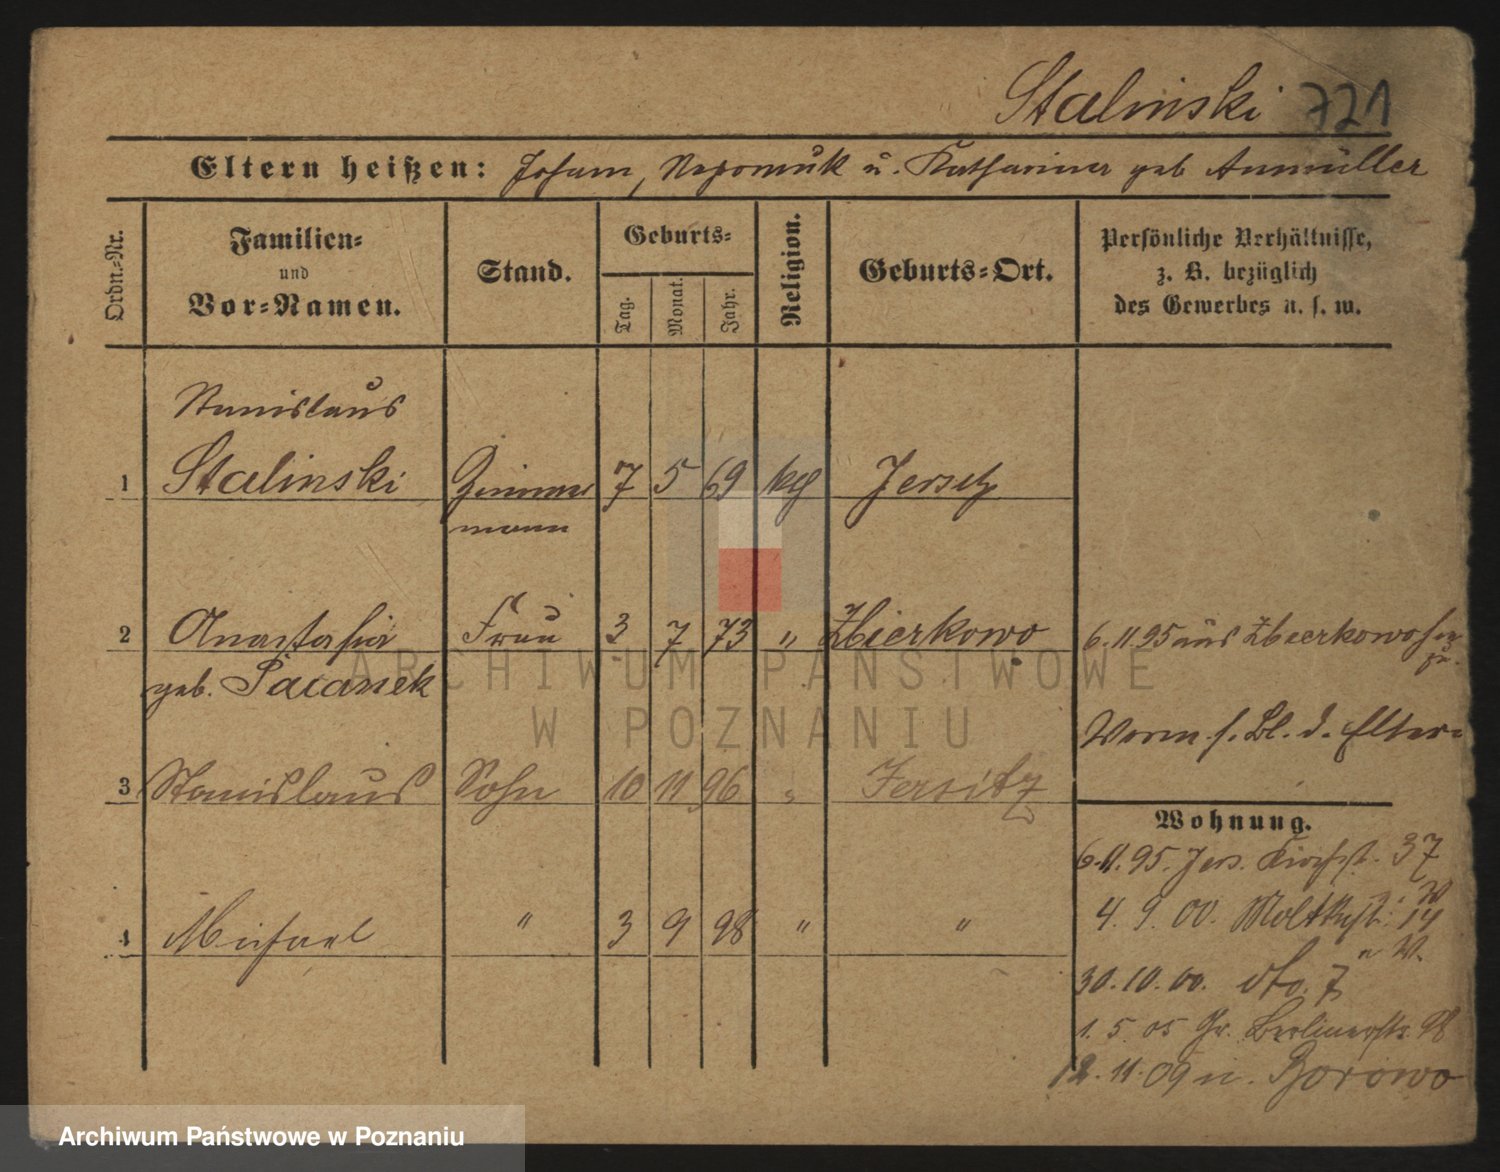 Stalinski 721
Eltern heißen: Johann, Nepomuk u. Katharina geb Anmüller
Ordn.-Nr.
Familien-
und
Vor-Namen.
Stand.
Geburts-
Tag. Monat. Jahr.
Religion.
Geburts-Ort.
Persönliche Verhältnisse,
z. B. bezüglich
des Gewerbes u. s. w.
Stanislaus
1 Stalinski Zimmer 7 5 69 kg Jersitz
mann
2 Anastasia Frau 3 7 73 " Zbierkowo 6. 11. 95 aus Zbierkowo
geb. Pacanek
ARCHIWUM PAŃSTWOWE
W POZNANIU
Worm. s. Bl. d. Eltern
3 Stanislaus Sohn 10 11 96 " Jersitz
Wohnung.
6. 11. 95. Jers. Kirchst. 37
4. 9. 00. Moltkest. 14
4 Michael " 3 9 98 " "
30. 10. 00. dto. 7
1. 5. 05 Gr. Berlinerstr. 98
12. 11. 09 n. Borowo
Archiwum Państwowe w Poznaniu